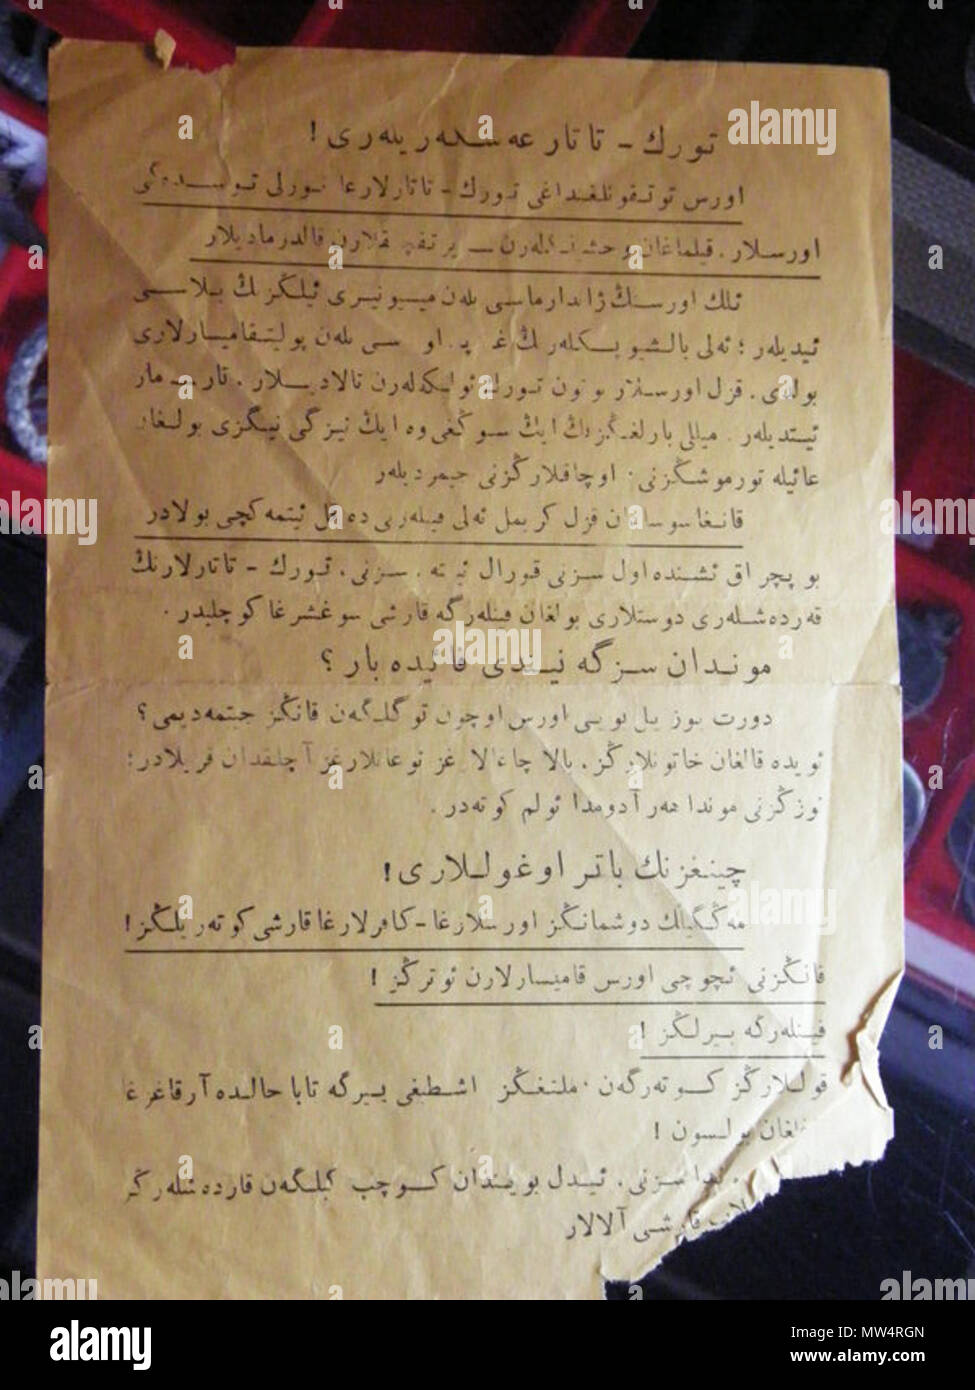 تورك - تاتار عەسكەريلەرى !
اورس توتقونلغنداغى تورك - تاتارلارغا تورلى توسدەگى
اورسلار . قيلماغان وحشيلكلەرن — يرتقچلقلارن قالدرماديلار
ئلك اورسنڭ ژاندارماسى بلەن ميسيونيرى ئيلڭزنڭ بلاسى
ئيديلەر ؛ ئەلى بالشيويكلەرنڭ سى بلەن پوليتقاميسارلارى
بولدى . قزل اورسلار بوتون تورك ئولكەلەرن تالاديلار . تارـمار
ئيتديلەر . ميللى بارلغڭزنڭ ايڭ سوڭغى وە ايڭ نيزگى نيگزى بولغان
عائيلە تورموشڭزنى . اوچاقلارڭزنى جيمرديلەر
قانغا سوساغان قزل كريمل ئەلى فينلەرنى دە قل ئيتمەكچى بولادر
بو پچراق ئشندە اول سزنى قورال ئيتە . سزنى . تورك - تاتارلارنڭ
قەردەشلەرى دوستلارى بولغان فينلەرگە قارشى سوغشرغا كوچليدر .
موندان سزگە نيندى فائيدە بار ؟
دورت يوز يل بويى اورس اوچون توگلگەن قانڭز جيتمەديمى ؟
ئويدە قالغان خاتونلارڭز . بالا چاغالارڭز توغانلارڭز آچلقدان قريلادر :
ئوزڭزنى موندا هەر آدومدا ئولم كوتەدر .
چينغزنك باتر اوغوللارى !
مەڭگيلك دوشمانڭز اورسلارغا - كافرلارغا قارشى كوتەريلڭز !
قانڭزنى ئچوچى اورس قاميسارلارن ئوترڭز !
فينلەرگە بيرلڭز !
قوللارڭز كوتەرگەن . ملتغڭز اشطغى بيرگە تابا حالدە آرقاغزغا
بولسون !
سزنى . ئيدل بويندان كوچب كيلگەن قاردەشلەرڭز
قارشى آلالار